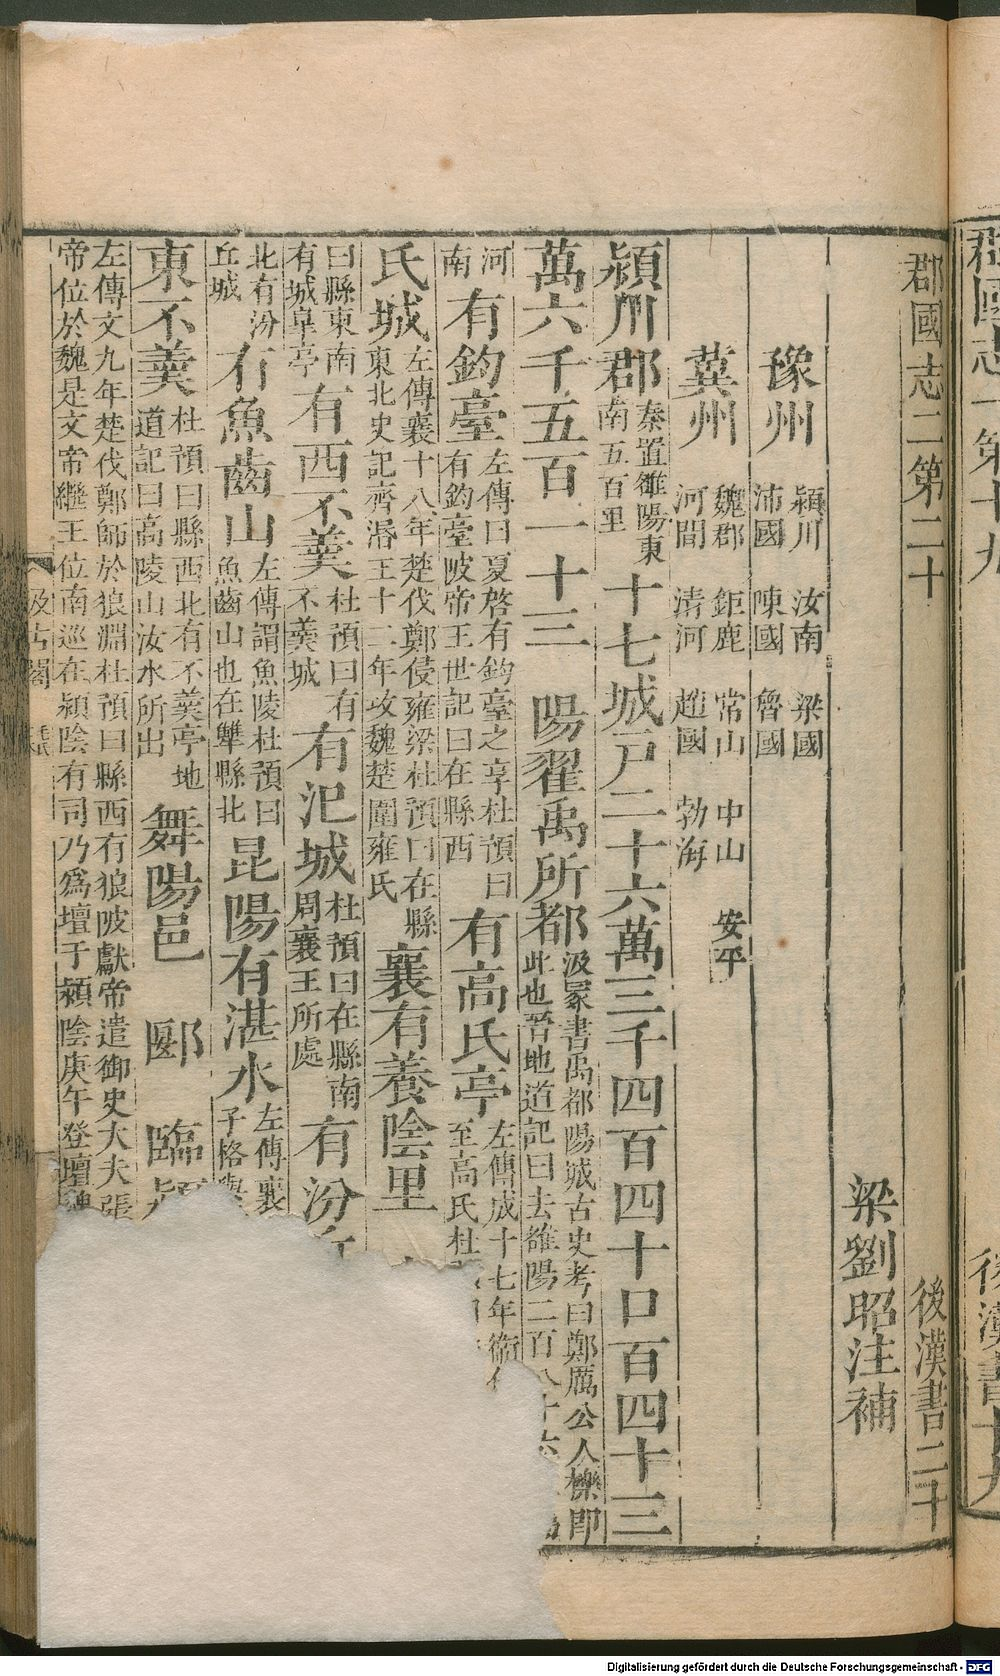 郡國志二第二十 後漢書二十
梁劉昭注補
豫州 潁川 汝南 梁國 沛國 陳國 魯國
冀州 魏郡 鉅鹿 常山 中山 安平 河間 清河 趙國 勃海
潁川郡秦置雒陽東南五百里十七城戸二十六萬三千四百四十口百四十三
萬六千五百一十三 陽翟禹所都汲冢書禹都陽城古史考曰鄭厲公人櫟即此也晉地道記曰去雒陽二百八十六
河南有鈞臺左傳曰夏啓有鈞臺之享杜預曰有鈞臺陂帝王世記曰在縣西有高氏亭左傳成十七年衛至高氏杜
氏城左傳襄十八年楚伐鄭侵雍梁杜預曰在縣東北史記齊湣王十二年攻魏楚圍雍氏襄有養陰里
曰縣東南有城皐亭有西不羹杜預曰有不羹城有氾城杜預曰在縣南周襄王所處有汾
北有汾丘城有魚齒山左傳謂魚陵杜預曰魚齒山也在犨縣北昆陽有湛水左傳襄子格與
東不羹杜預曰縣西北有不羹亭地道記曰高陵山汝水所出舞陽邑 郾 臨潁
左傳文九年楚伐鄭師於狼淵杜預曰縣西有狼陂獻帝遣御史大夫張
帝位於魏是文帝繼王位南巡在潁陰有司乃爲壇于潁陰庚午登壇魏
汲古閣 毛氏
郡國志一第十九 後漢書十九
Digitalisierung gefördert durch die Deutsche Forschungsgemeinschaft - DFG